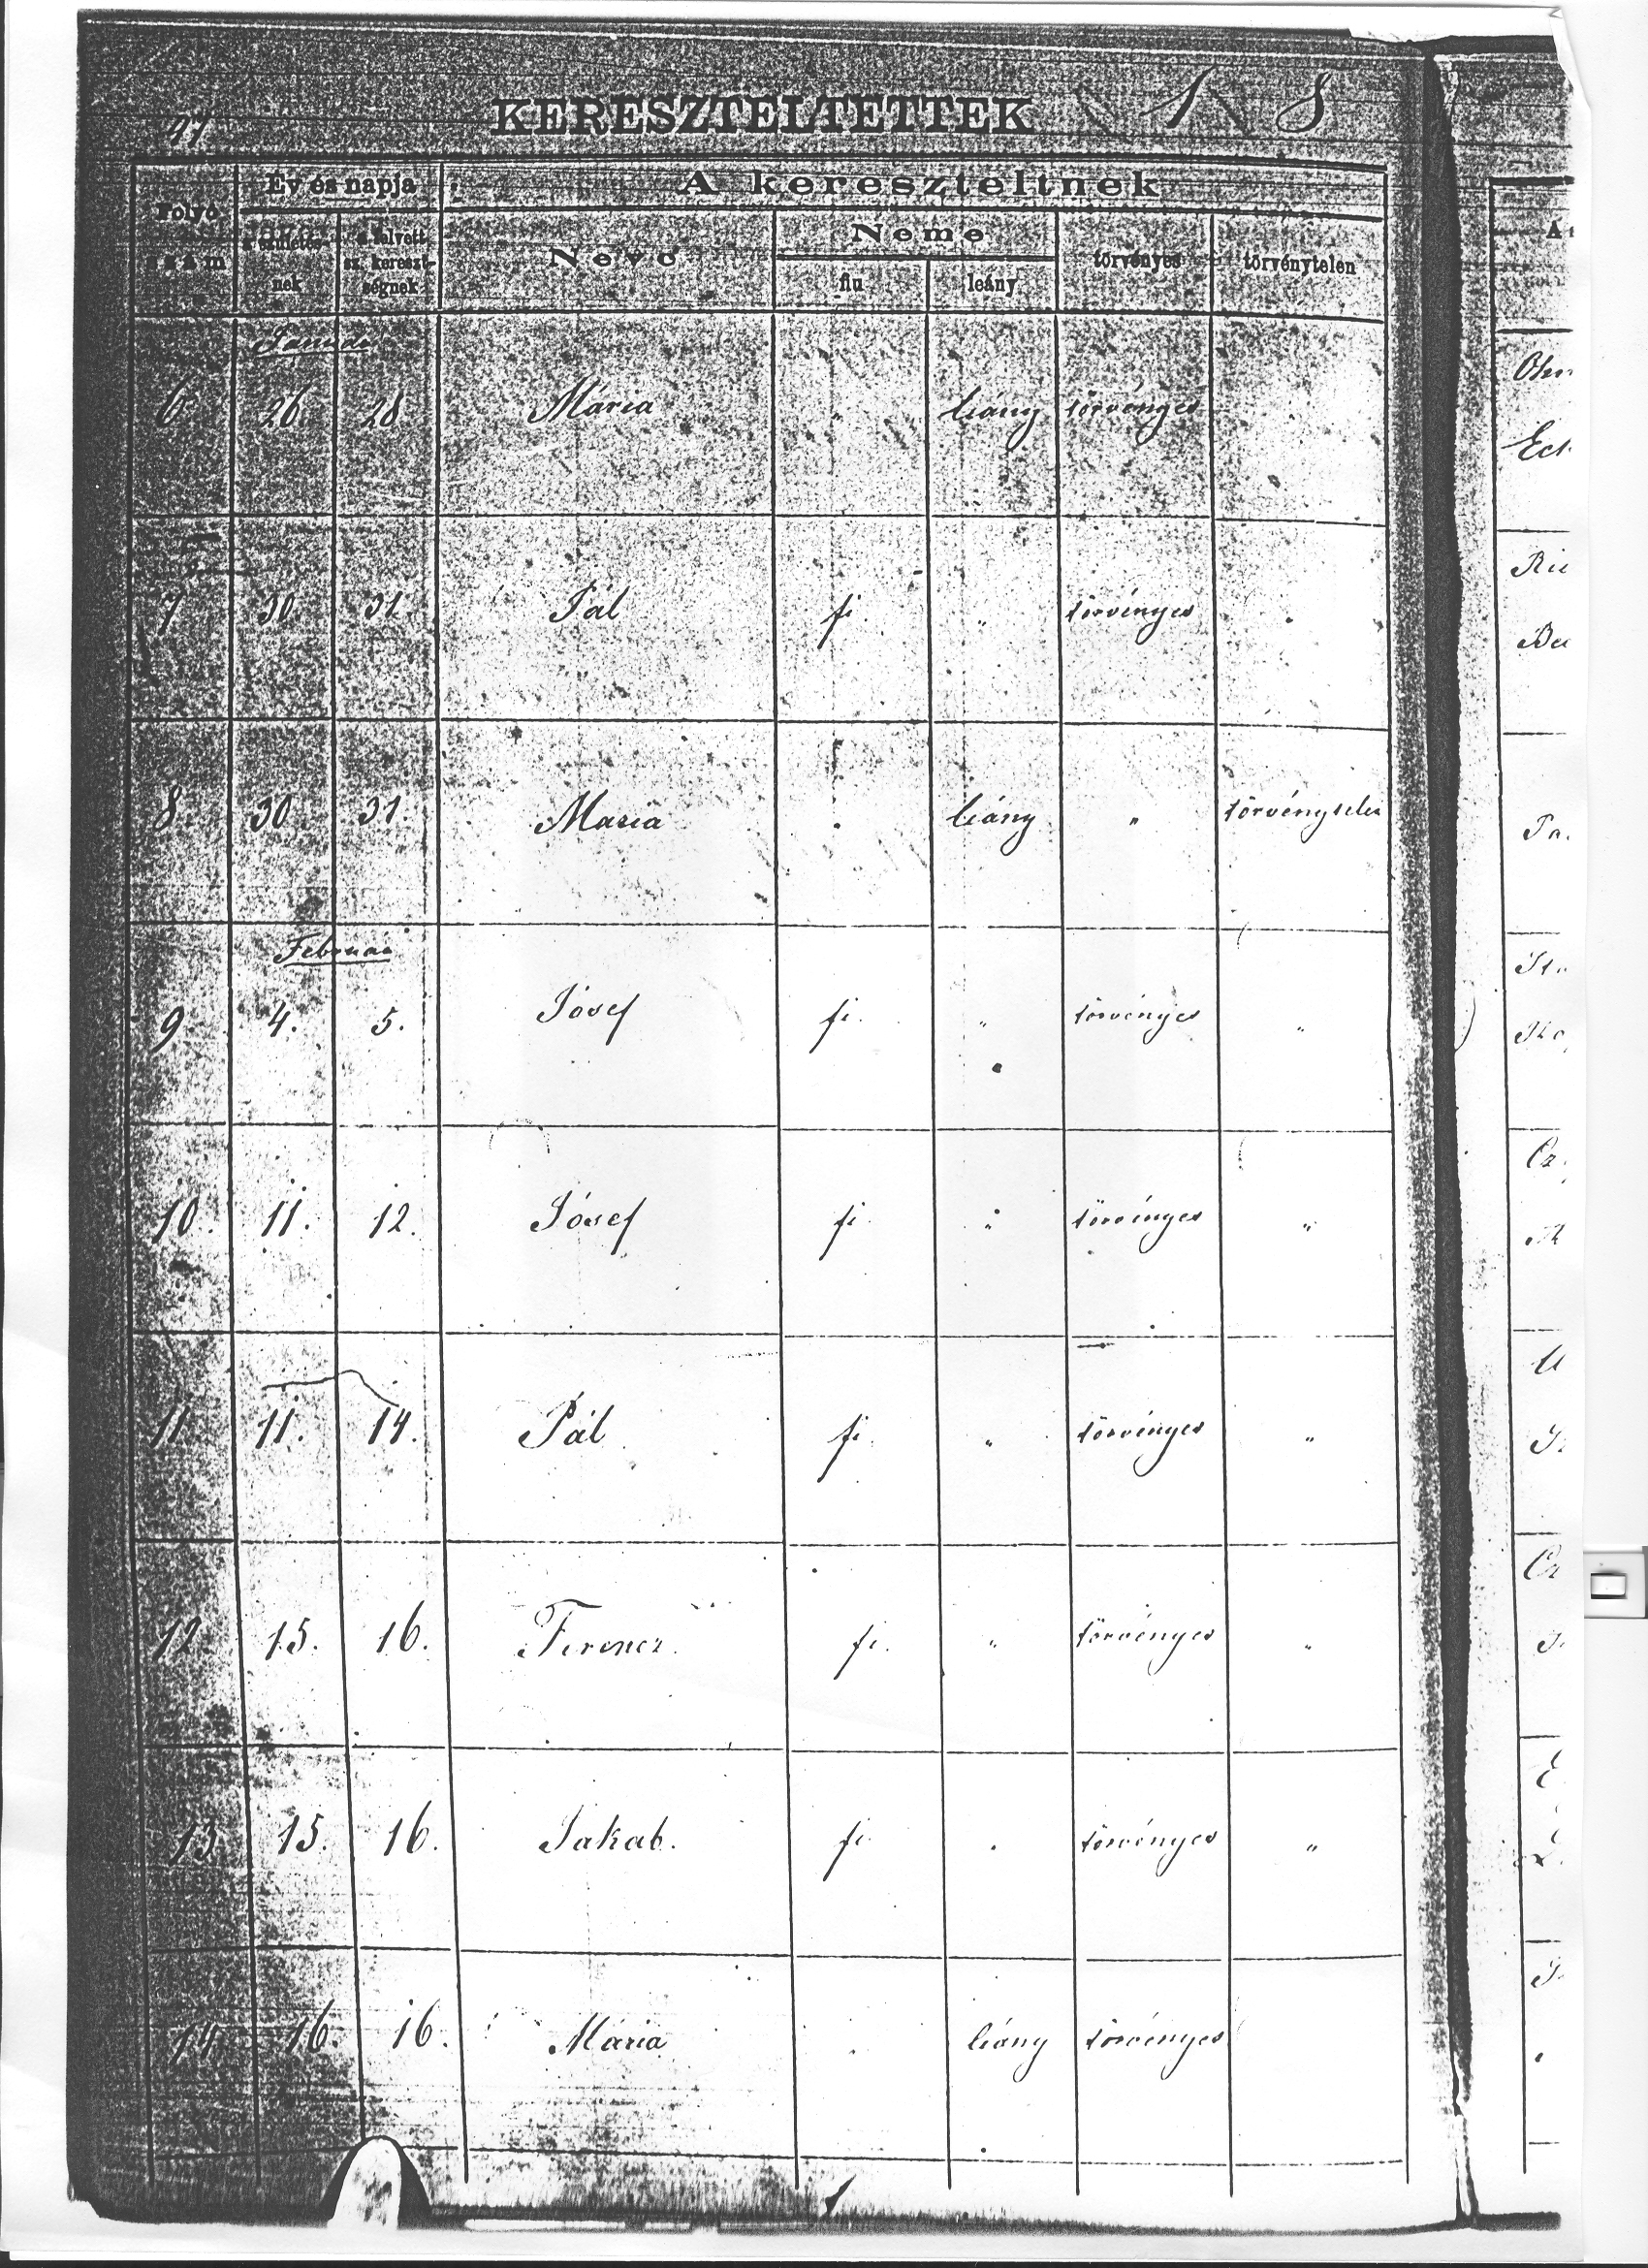 KERESZTELTETTEK 18
97
Év és napja A kereszteltnek
Folyó szám a születés-nek a felvett sz. kereszt-ségnek Neve Neme fiu leány törvényes törvénytelen
Január
6. 26. 28. Mária " leány törvényes
7 30. 31. Pál fi. " törvényes "
8. 30. 31. Maria " leány " törvénytelen
Február
9 4. 5. Jósef fi. " törvényes "
10. 11. 12. Jósef fi. " törvényes "
11 11. 14. Pál fi. " törvényes "
12 15. 16. Ferencz. fi. " törvényes "
13. 15. 16. Jakab. fi. " törvényes "
14. 16. 16. Mária " leány törvényes